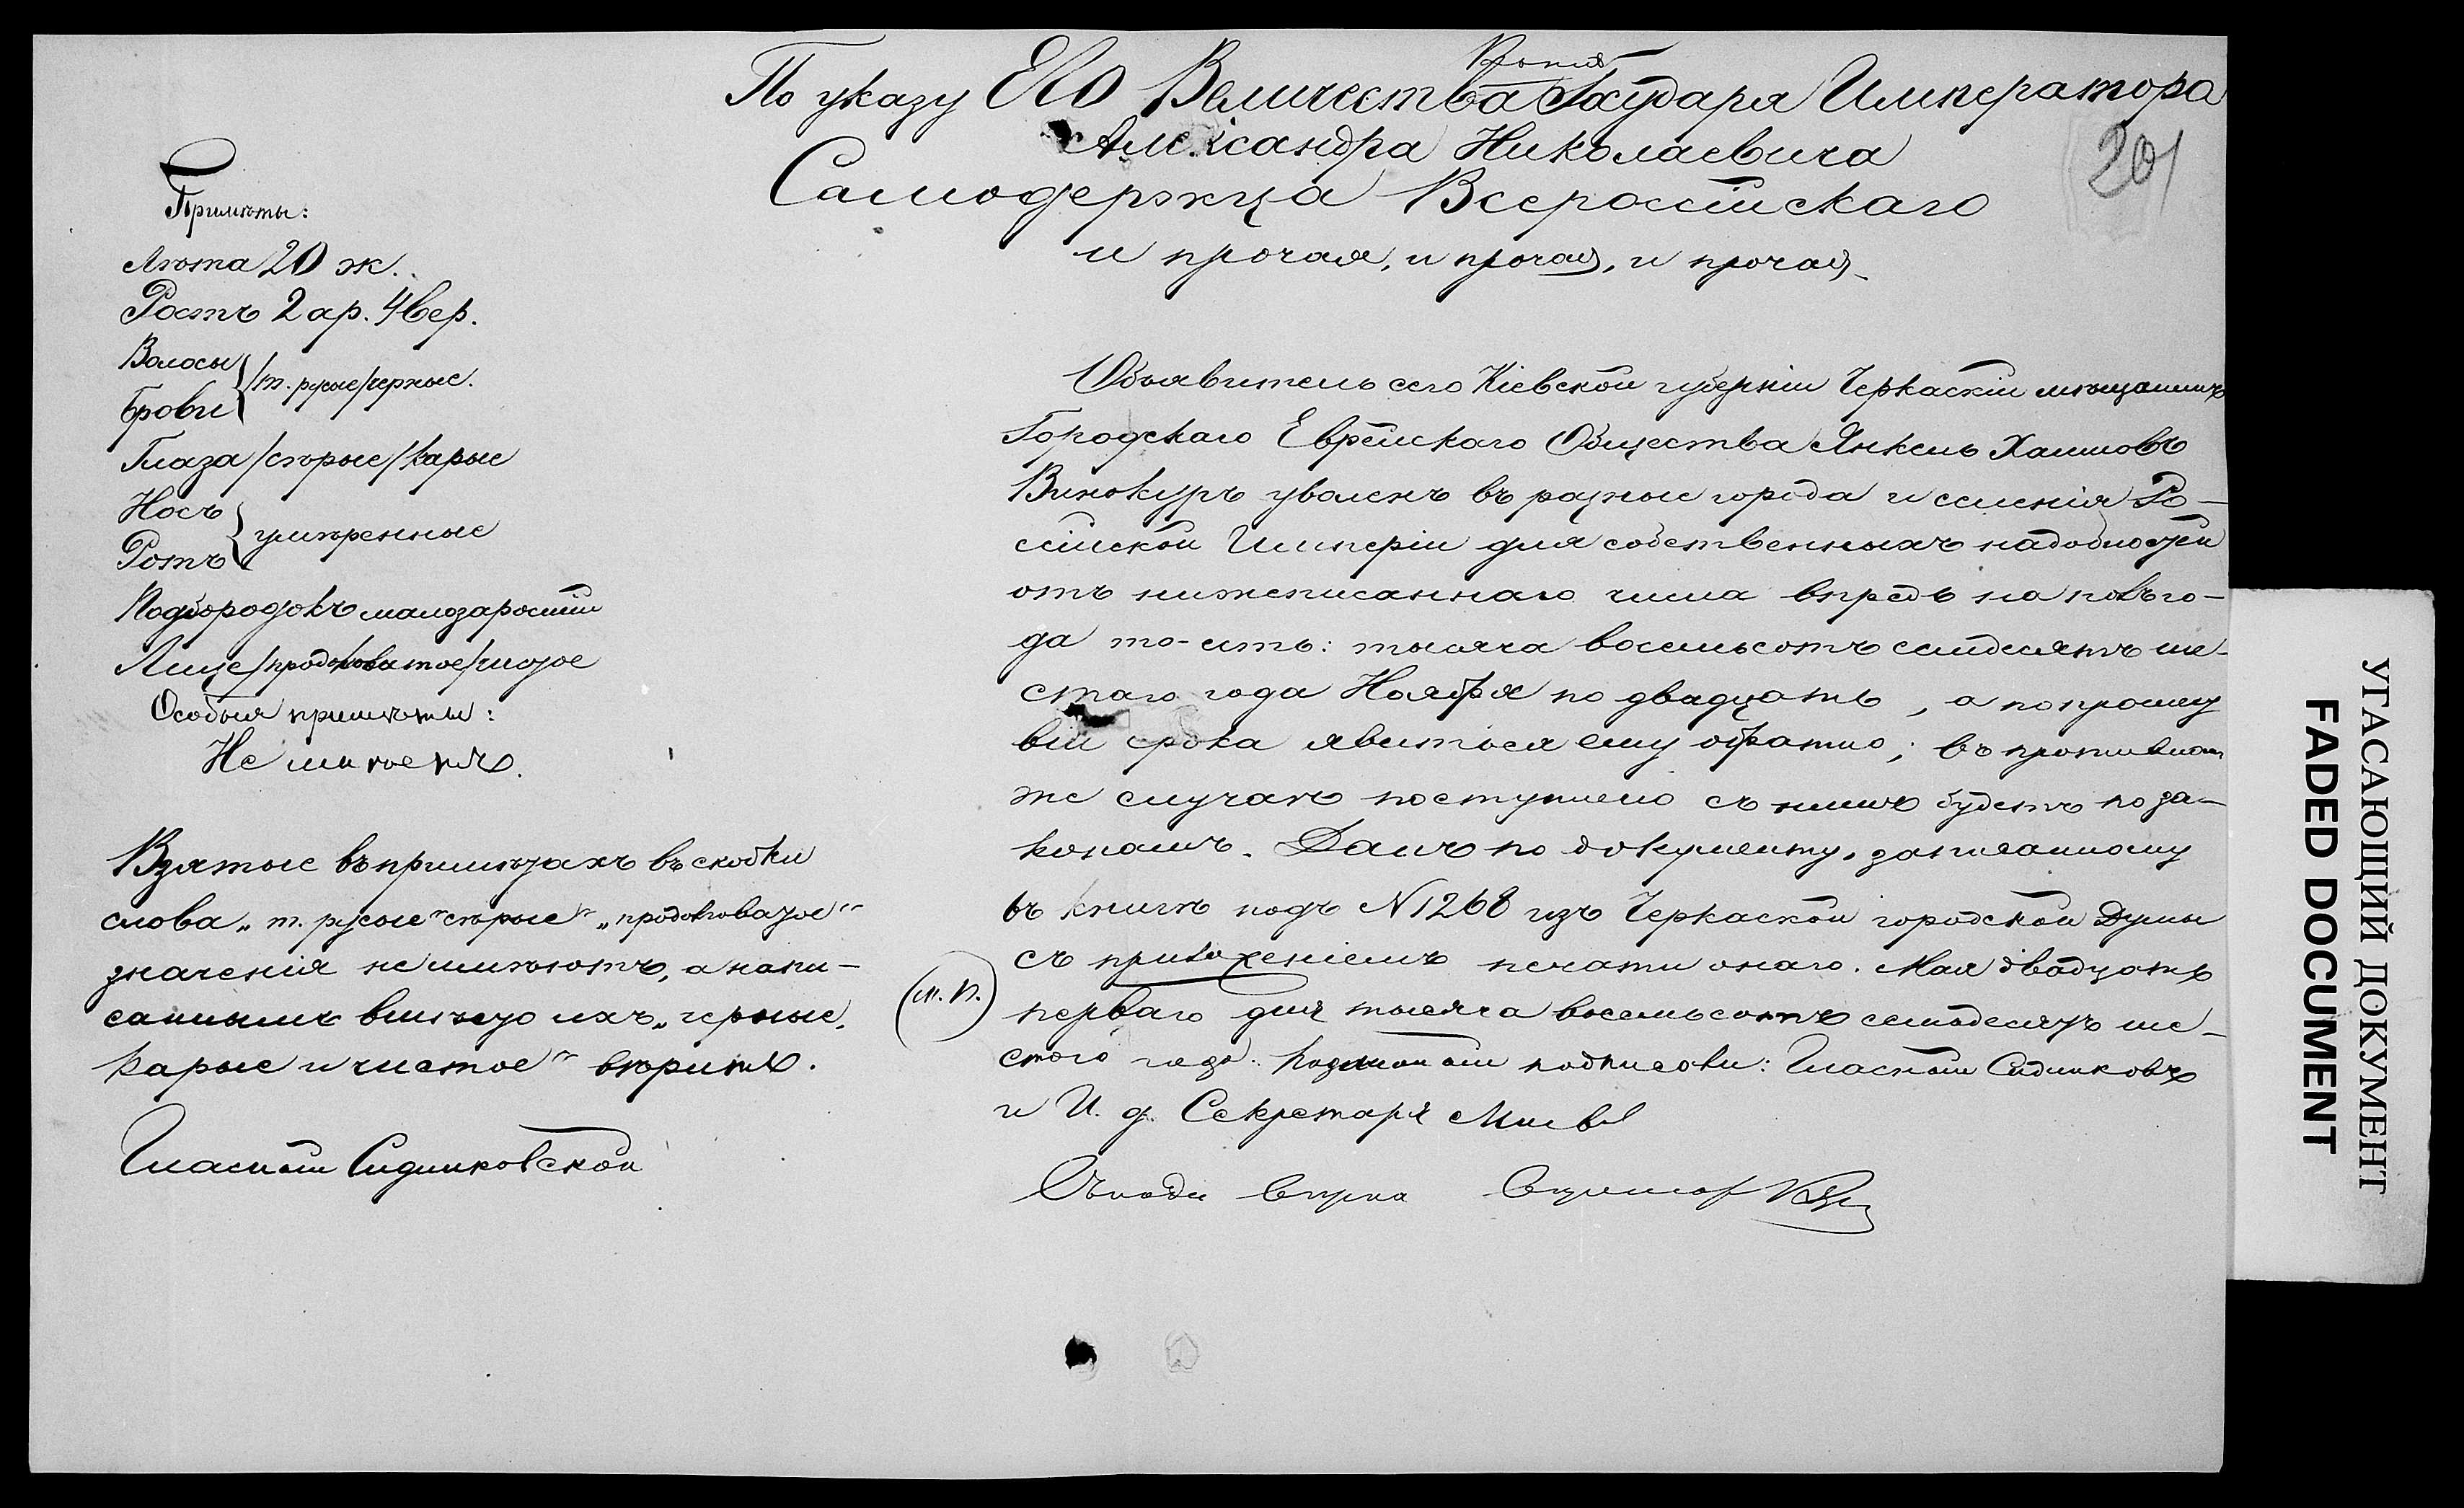 Копія
По указу Его Величества Государя Императора
Александра Николаевича
Самодержца Всероссійскаго
и прочая, и прочая, и прочая
201
Примѣты:
Лѣта 20 ж.
Ростъ 2 ар. 4 вер.
Волосы
Брови
/т. русые/черные.
Глаза /сѣрые/ карые
Носъ
Ротъ
умѣренные
Подбородокъ малозаростій
Лице /продолговатое/ чистое
Особыя примѣты:
Не имѣетъ.
Взятые въ примѣтахъ въ скобки
слова „т. русые" сѣрые" „продолговатое"
значенія не имѣютъ, а напи-
саннымъ вмѣсто ихъ „черные,
карые и чистое" вѣрить.
Гласный Сидликовской
Объявитель сего Кіевской губерніи Черкаскій мѣщанинъ
Городскаго Еврейскаго Общества Янкель Хаимовъ
Винокуръ уволенъ въ разные города и селенія Ро-
сійской Имперіи для собственныхъ надобностей
отъ нижеписаннаго числа впредь на полъ го-
да то-есть: тысяча восемьсотъ семдесятъ ше-
стаго года Ноября по двадцать , а по прошед
віи срока явиться ему обратно; въ противном
же случаѣ поступлено съ нимъ будетъ по за-
конамъ. Данъ по документу, записанному
въ книгѣ подъ № 1268 изъ Черкаской городской Думы
съ приложеніемъ печати онаго. Мая двадцать
(М. П.)
перваго дня тысяча восемьсотъ семдесятъ ше-
стого года. подписали: Гласный Сидликовъ
и И. д. Секретаря